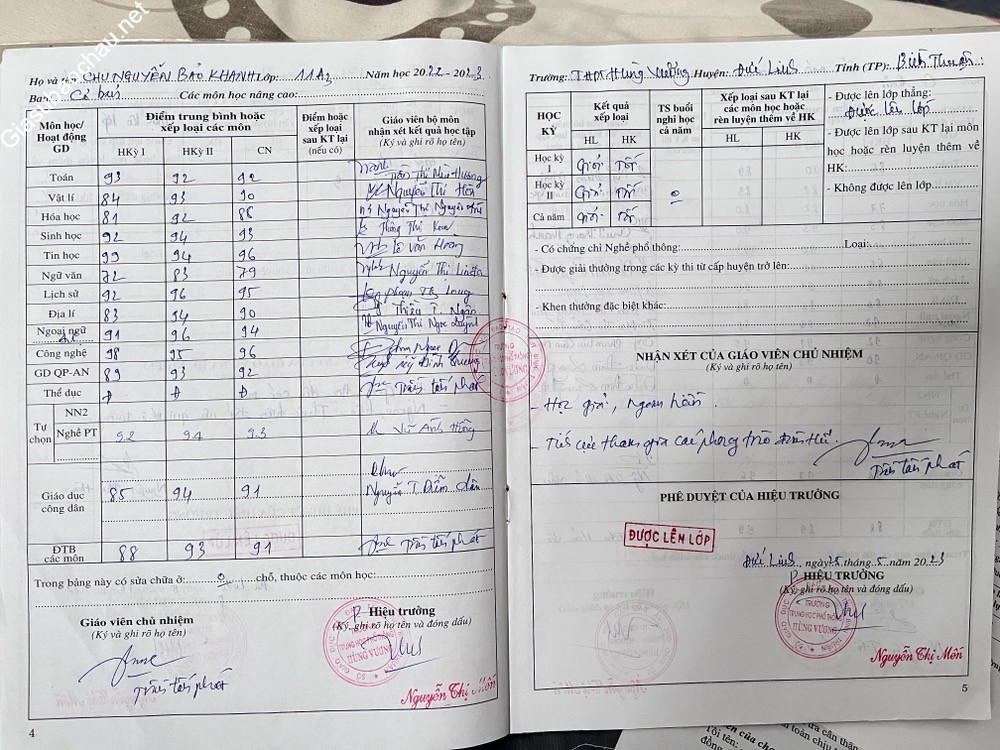 Giasuhaichau.net
Họ và tên CHU NGUYỄN BẢO KHANH Lớp: 11A3 Năm học 2022 - 2023
Ban: Cơ bản Các môn học nâng cao:
Môn học/ Hoạt động GD
Điểm trung bình hoặc xếp loại các môn
Điểm hoặc xếp loại sau KT lại (nếu có)
Giáo viên bộ môn nhận xét kết quả học tập (Ký và ghi rõ họ tên)
HKỳ I HKỳ II CN
Toán 93 92 92 Trần Thị Hương
Vật lí 84 93 90 Nguyễn Thị
Hóa học 81 92 88 Nguyễn Thị Nguyên
Sinh học 92 94 93 Thị Kim
Tin học 99 94 96 Lê Văn Hoàng
Ngữ văn 72 83 79 Nguyễn Thị
Lịch sử 92 96 95
Địa lí 83 94 90 T. Ngân
Ngoại ngữ 91 96 94 Nguyễn Thị Ngọc Quỳnh
Công nghệ 98 95 96
GD QP-AN 89 93 92 Đình Trường
Thể dục Đ Đ Đ Trần Tấn Phát
Tự chọn
NN2
Nghề PT 9.2 9.4 9.3 Vũ Anh Hồng
Giáo dục công dân 85 94 91 Nguyễn T Diễm
ĐTB các môn 88 93 91 Trần Tấn Phát
Trong bảng này có sửa chữa ở: 0 chỗ, thuộc các môn học:
Giáo viên chủ nhiệm
(Ký và ghi rõ họ tên)
Trần Tấn Phát
P. Hiệu trưởng
(Ký, ghi rõ họ tên và đóng dấu)
TRƯỜNG TRUNG HỌC PHỔ THÔNG HÙNG VƯƠNG
Nguyễn Thị Mến
4
Trường: THPT Hùng Vương Huyện: Đức Linh Tỉnh (TP): Bình Thuận
HỌC KỲ
Kết quả xếp loại
HL HK
TS buổi nghỉ học cả năm
Xếp loại sau KT lại các môn học hoặc rèn luyện thêm về HK
HL HK
Học kỳ I Giỏi Tốt
Học kỳ II Giỏi Tốt 0
Cả năm Giỏi Tốt
- Được lên lớp thẳng:
Được lên lớp
- Được lên lớp sau KT lại môn
học hoặc rèn luyện thêm về
HK:
- Không được lên lớp
- Có chứng chỉ Nghề phổ thông: Loại:
- Được giải thưởng trong các kỳ thi từ cấp huyện trở lên:
- Khen thưởng đặc biệt khác:
NHẬN XÉT CỦA GIÁO VIÊN CHỦ NHIỆM
(Ký và ghi rõ họ tên)
- Học giỏi, ngoan hiền.
- Tích cực tham gia các phong trào
Trần Tấn Phát
PHÊ DUYỆT CỦA HIỆU TRƯỞNG
ĐƯỢC LÊN LỚP
Đức Linh, ngày 25 tháng 5 năm 2023
P. HIỆU TRƯỞNG
(Ký, ghi rõ họ tên và đóng dấu)
TRƯỜNG TRUNG HỌC PHỔ THÔNG HÙNG VƯƠNG
Nguyễn Thị Mến
5